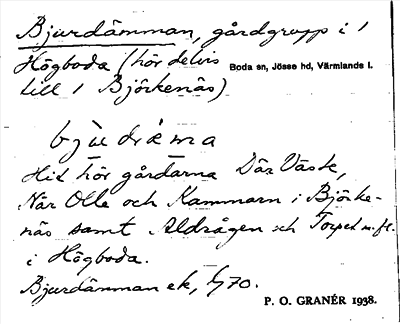 Bjurdämman, gårdgrupp i 1
Högboda (hör delvis
Boda sn, Jösse hd, Värmlands l.
till 1 Björkenäs)
Hit hör gårdarna Där Väste,
När Olle och Kammarn i Björke-
näs samt Aldrågen och Torpet m.fl.
i Högboda.
Bjurdämman ek, 70.
P. O. GRANÉR 1938.